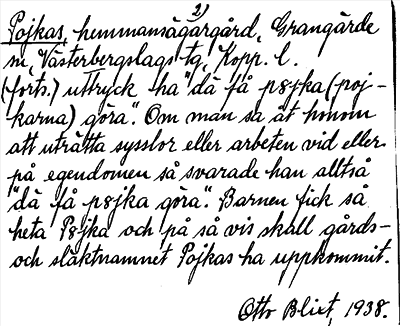 2)
Pojkas, hemmansägargård, Grangärde
sn, Västerbergslags tg, Kopp. l.
(forts.) uttryck ha "dä få p8jka (poj-
karna) göra". Om man sa åt honom
att uträtta sysslor eller arbeten vid eller
på egendomen så svarade han alltså
"dä få p8jka göra". Barnen fick så
heta P8jka och på så vis skall gårds-
och släktnamnet Pojkas ha uppkommit.
Otto Blixt, 1938.